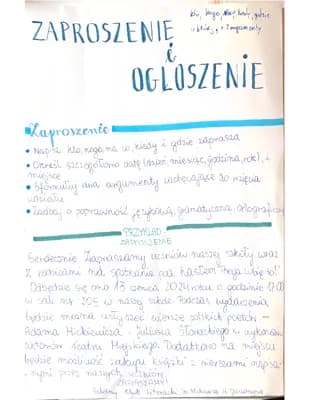 kto, kogo,
ZAPROSZENIE
i
OGŁOSZENIE
Zaproszenie
• Napisz kto, kogo, na co, kiedy i gdzie zaprasza
• Określ szczegółowo datę (dzień, miesiąc, godzina, rok), +
miejsce
• Sformułuj dwa argumenty zachęcające do wzięcia
udziału
• Zadbaj o poprawność językową, gramatyczną, ortograficzną
PRZYKŁAD
ZAPROSZENIE
Serdecznie Zapraszamy uczniów naszej szkoły wraz
z rodzicami na spotkanie pod hasłem
Odbędzie się ono 13 czerwca 2024 roku o godzinie 17:00
w sali nr 205 w naszej szkole. Podczas wydarzenia
będzie można usłyszeć wiersze polskich poetów –
Adama Mickiewicza i Juliusza Słowackiego w wykonaniu
aktorów Teatru Miejskiego. Dodatkowo na miejscu
będzie możliwość zakupu książki z wierszami napisa-
nymi przez naszych uczniów.
ZAPRASZAMY!